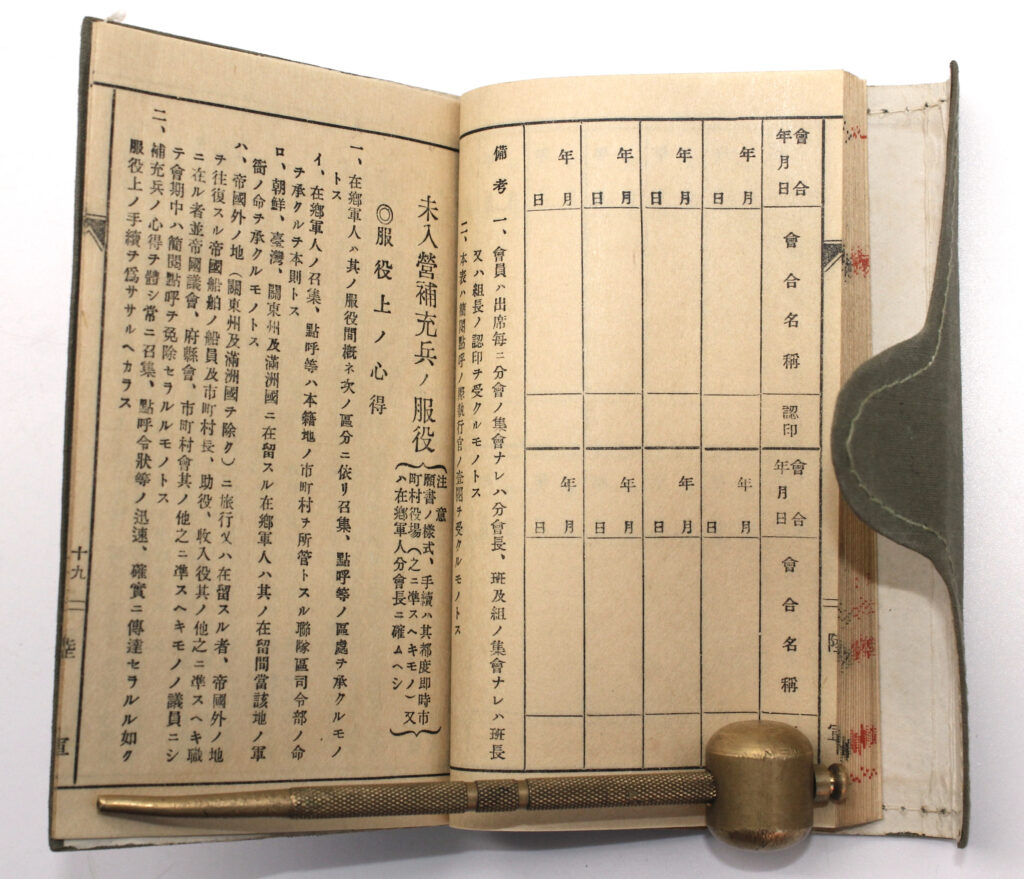 會合
年月日
會合名稱
認印
會合
年月日
會合名稱
年
月日
年
月日
年
月日
年
月日
年
月日
年
月日
年
月日
年
月日
備考 一、會員ハ出席每ニ分會ノ集會ナレハ分會長、班及組ノ集會ナレハ班長
又ハ組長ノ認印ヲ受クルモノトス
二、本表ハ簡閱點呼ノ際執行官ノ査閱ヲ受クルモノトス
未入營補充兵ノ服役
注意
願書ノ樣式、手續ハ其都度卽時市
町村役場(之ニ準スヘキモノ)又
ハ在鄕軍人分會長ニ確ムヘシ
◎服役上ノ心得
一、在鄕軍人ハ其ノ服役間槪ネ次ノ區分ニ依リ召集、點呼等ノ區處ヲ承クルモノ
トス
イ、在鄕軍人ノ召集、點呼等ハ本籍地ノ市町村ヲ所管トスル聯隊區司令部ノ命
ヲ承クルヲ本則トス
ロ、朝鮮、臺灣、關東州及滿洲國ニ在留スル在鄕軍人ハ其ノ在留間當該地ノ軍
衙ノ命ヲ承クルモノトス
ハ、帝國外ノ地(關東州及滿洲國ヲ除ク)ニ旅行又ハ在留スル者、帝國外ノ地
ヲ往復スル帝國船舶ノ船員及市町村長、助役、收入役其ノ他之ニ準スヘキ職
ニ在ル者並帝國議會、府縣會、市町村會其ノ他之ニ準スヘキモノノ議員ニシ
テ會期中ハ簡閱點呼ヲ免除セラルルモノトス
二、補充兵ノ心得ヲ體シ常ニ召集、點呼令狀等ノ迅速、確實ニ傳達セラルル如ク
服役上ノ手續ヲ爲ササルヘカラス
十九
陸軍